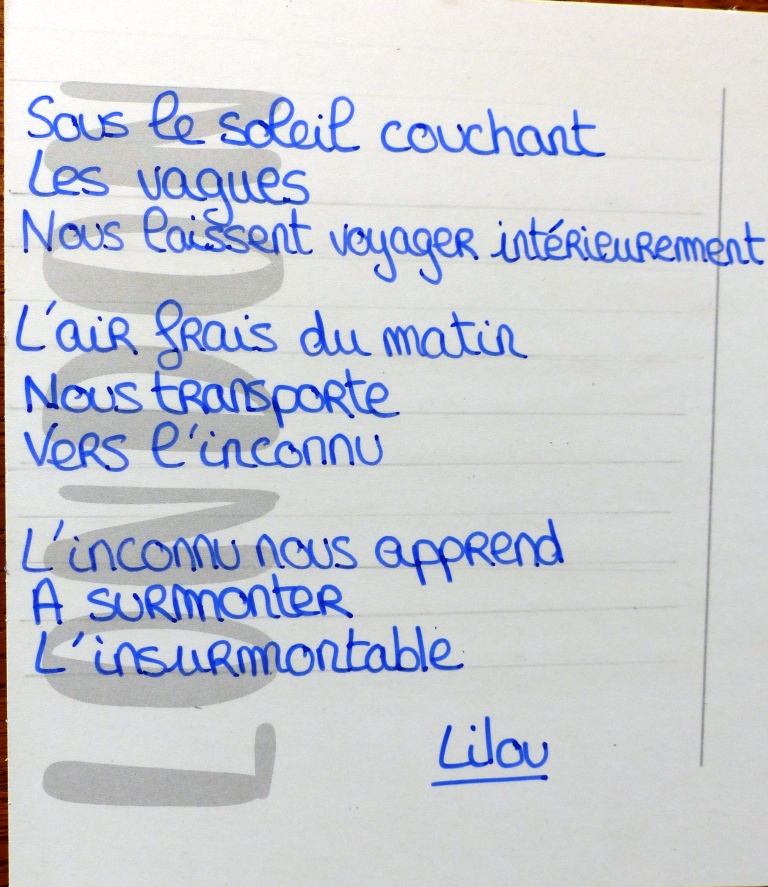 Sous le soleil couchant
Les vagues
Nous laissent voyager intérieurement
L'air frais du matin
Nous transporte
Vers l'inconnu
L'inconnu nous apprend
A surmonter
L'insurmontable
Lilou
LONDON